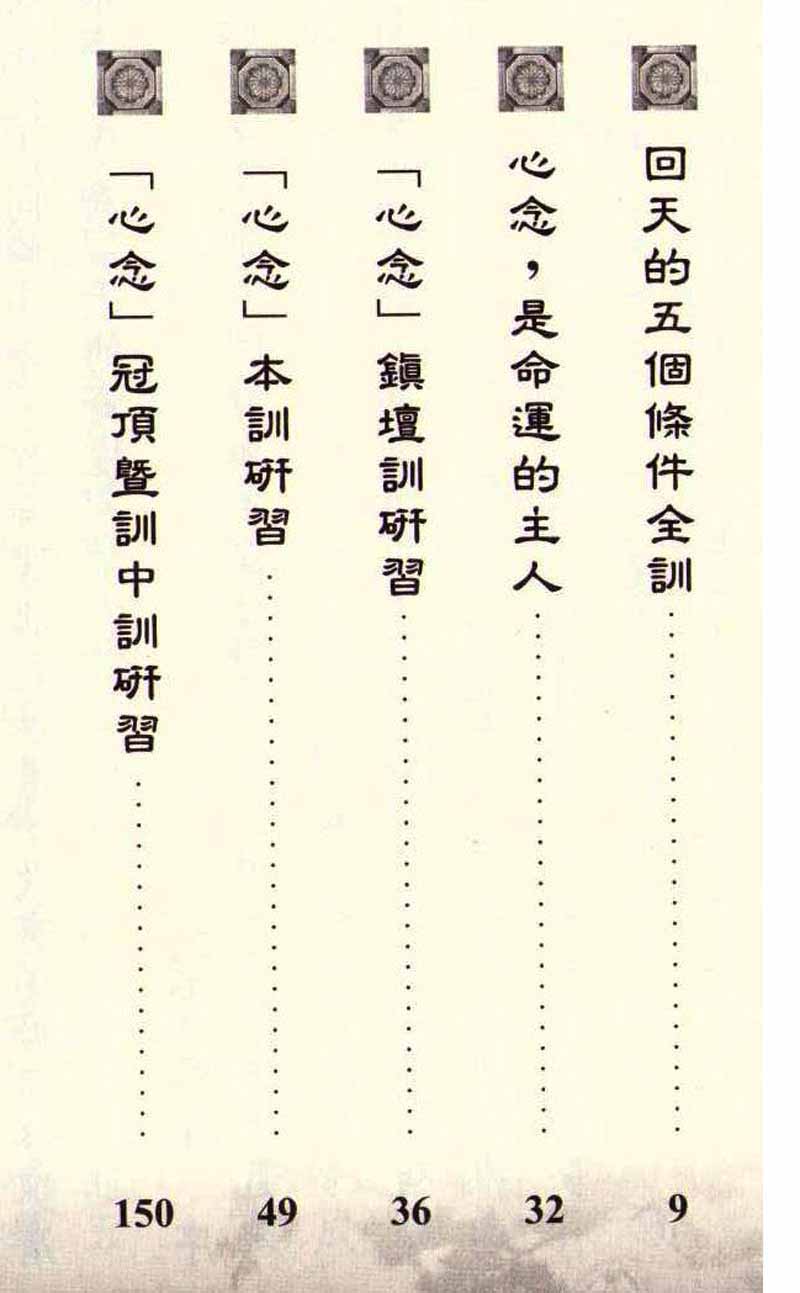 回天的五個條件全訓……………………9
心念，是命運的主人……………………32
「心念」鎮壇訓研習……………………36
「心念」本訓研習……………………49
「心念」冠頂暨訓中訓研習……………………150